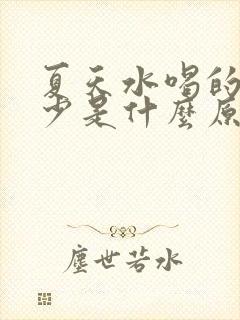 夏天水喝的
少是什麼原
塵世若水